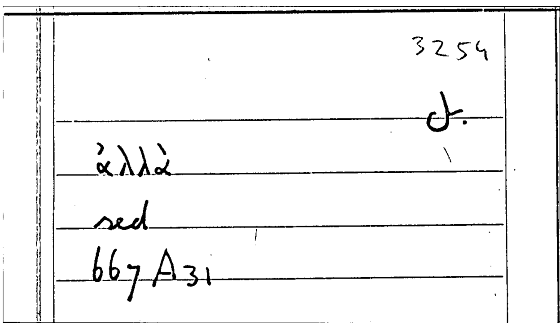 3254
ἀλλὰ
sed
667 A31